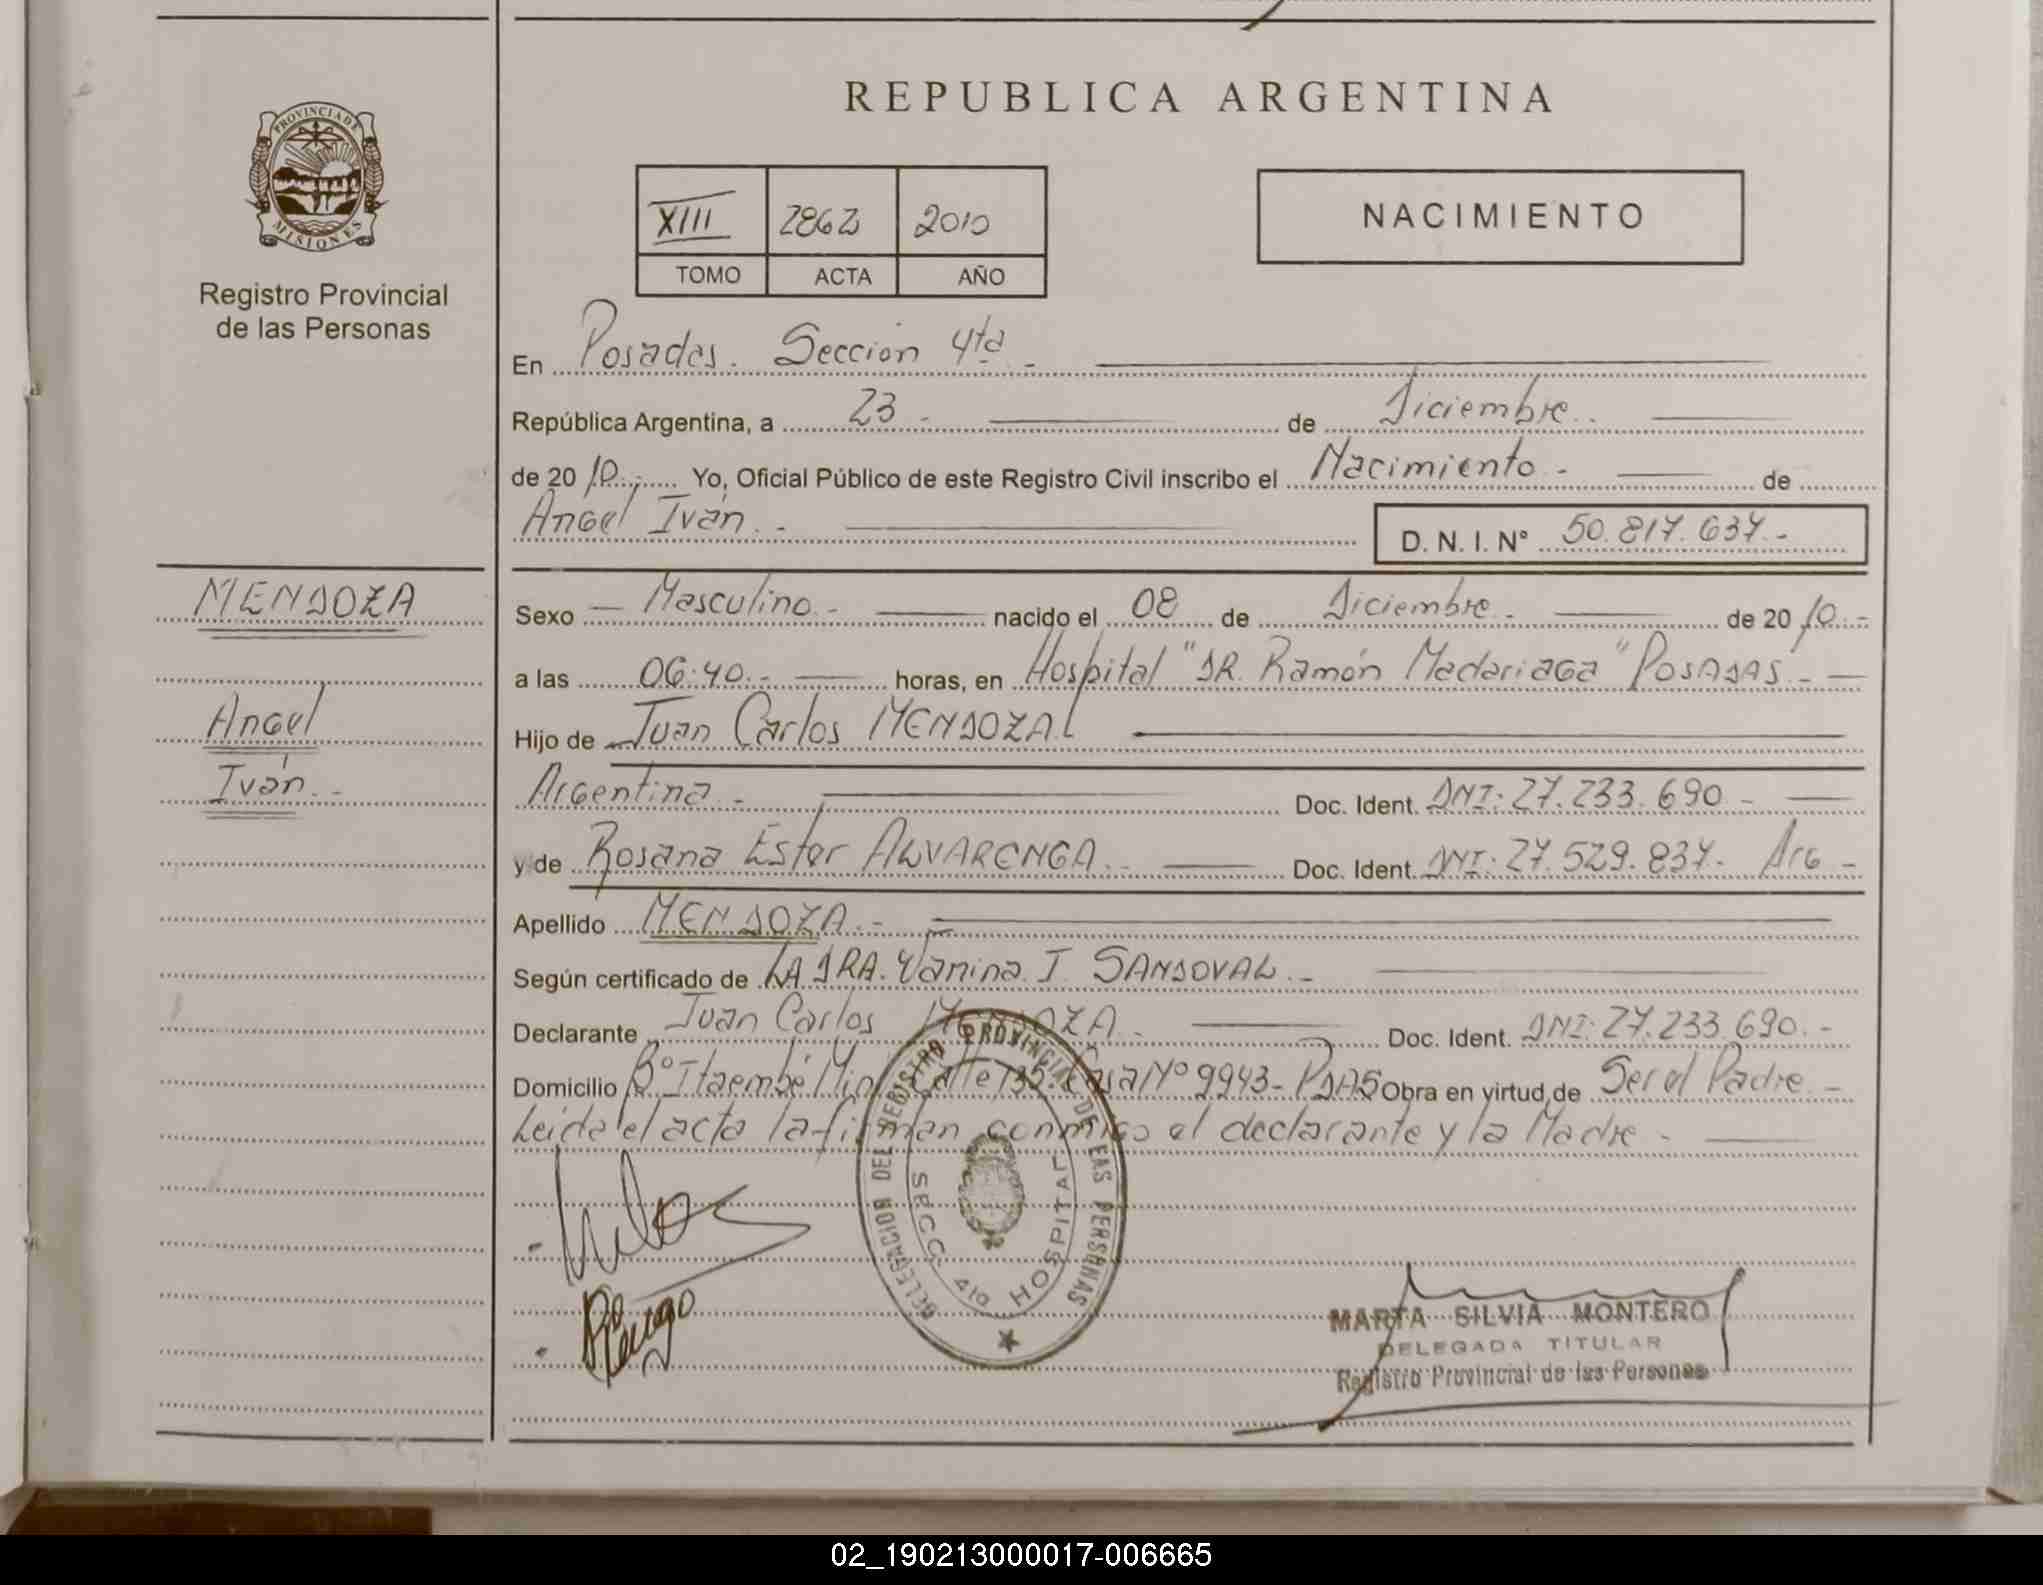 REPUBLICA ARGENTINA
PROVINCIA DE
MISIONES
Registro Provincial
de las Personas
XIII 2862 2010
TOMO ACTA AÑO
NACIMIENTO
En Posadas. Sección 4ta -
República Argentina, a 23 - de Diciembre.
de 20 10 Yo, Oficial Público de este Registro Civil inscribo el Nacimiento - de
Angel Iván. -
D. N. I. N° 50.817.637.-
MENDOZA
Angel
Iván. -
Sexo - Masculino. - nacido el 08 de Diciembre - de 20 10.-
a las 06:40.- horas, en Hospital "DR. Ramón Madariaga" POSADAS.-
Hijo de Juan Carlos MENDOZA
Argentina - Doc. Ident. DNI: 27.233.690 -
y de Rosana Ester ALVARENGA. - Doc. Ident. DNI: 27.529.837. Arg -
Apellido MENDOZA.-
Según certificado de LA DRA. Vanina I. SANDOVAL. -
Declarante Juan Carlos MENDOZA. - Doc. Ident. DNI: 27.233.690. -
Domicilio B° Itaembé Miní Calle 135. Casa N° 9943- PDAS Obra en virtud de Ser el Padre. -
Leída el acta la firman conmigo el declarante y la Madre -
DELEGACION DEL REGISTRO PROVINCIAL DE LAS PERSONAS
SECC. 4ta HOSPITAL
MARTA SILVIA MONTERO
DELEGADA TITULAR
Registro Provincial de las Personas
02_190213000017-006665